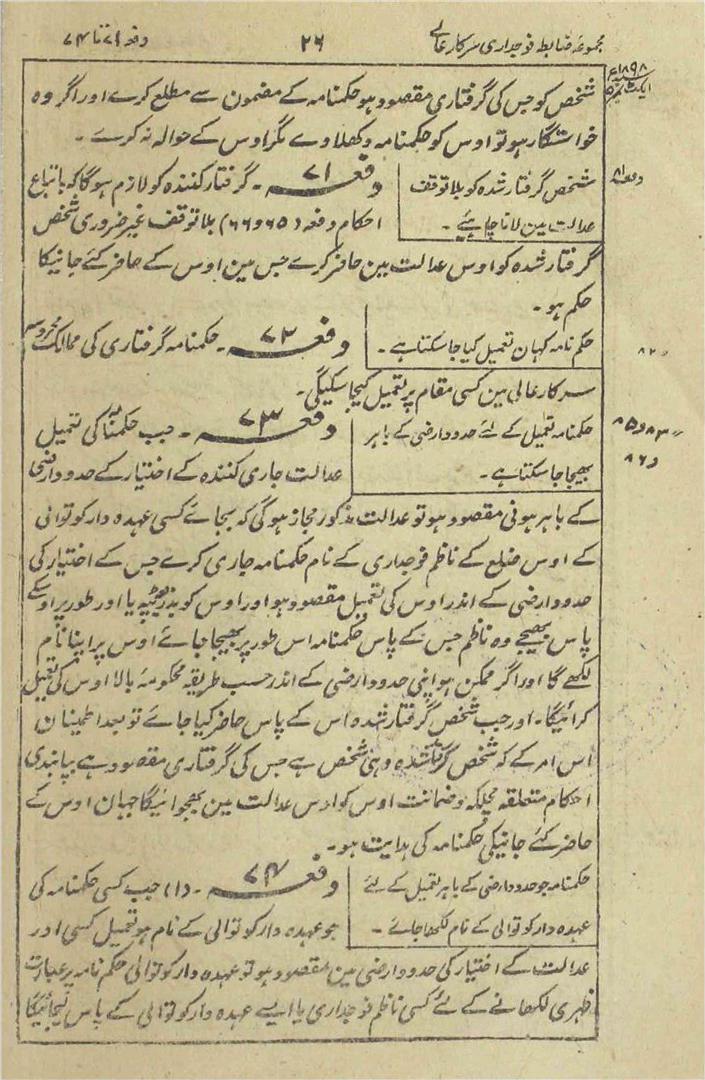 مجموعۂ ضابطہ فوجداری سرکار عالی
۲۶
دفعہ ۷۱ تا ۷۴
سنہ ۱۸۹۸ع
ایکٹ نمبر ۵
شخص کو جس کی گرفتاری مقصود ہو حکمنامہ کے مضمون سے مطلع کرے اور اگر وہ
خواستگار ہو تو اوس کو حکمنامہ دکھلاوے مگر اوس کے حوالہ نہ کرے ۔
شخص گرفتار شدہ کو بلا توقف
عدالت مین لانا چاہئے ۔
دفعہ ۸۱
دفعہ ۷۱ ۔ گرفتار کنندہ کو لازم ہوگا کہ باتباع
احکام دفعہ (۶۵ و ۶۶) بلا توقف غیر ضروری شخص
گرفتار شدہ کو اوس عدالت مین حاضر کرے جس مین اوس کے حاضر کئے جانیکا
حکم ہو ۔
حکم نامہ کہان تعمیل کیا جا سکتا ہے ۔
۸۲ ״
دفعہ ۷۲ ۔ حکمنامہ گرفتاری کی ممالک محروسہ
سرکار عالی مین کسی مقام پر تعمیل کیجا سکیگی ۔
حکمنامہ تعمیل کے لئے حدود ارضی کے باہر
بھیجا جا سکتا ہے ۔
״ ۸۳ و ۸۵
و ۸۶
دفعہ ۷۳ ۔ جب حکمنامہ کی تعمیل
عدالت جاری کنندہ کے اختیار کے حدود ارضی
کے باہر ہونی مقصود ہو تو عدالت مذکور مجاز ہوگی کہ بجائے کسی عہدہ دار کوتوالی
کے اوس ضلع کے ناظم فوجداری کے نام حکمنامہ جاری کرے جس کے اختیار کی
حدود ارضی کے اندر اوس کی تعمیل مقصود ہو اور اوس کو بذریعہ ٹپہ یا اور طور پر اوسکے
پاس بھیجے وہ ناظم جس کے پاس حکمنامہ اس طور پر بھیجا جائے اوس پر اپنا نام
لکھے گا اور اگر ممکن ہو اپنی حدود ارضی کے اندر حسب طریقہ محکومۂ بالا اوس کی تعمیل
کرائیگا ۔ اور جب شخص گرفتار شدہ اس کے پاس حاضر کیا جائے تو بعد اطمینان
اس امر کے کہ شخص گرفتار شدہ وہی شخص ہے جس کی گرفتاری مقصود ہے بپابندی
احکام متعلقہ مچلکہ و ضمانت اوس کو اوس عدالت مین بھجوائیگا جہان اوس کے
حاضر کئے جانیکی حکمنامہ کی ہدایت ہو ۔
حکمنامہ جو حدود ارضی کے باہر تعمیل کے لئے
عہدہ دار کوتوالی کے نام لکھا جائے ۔
دفعہ ۷۴ ۔ (۱) جب کسی حکمنامہ کی
جو عہدہ دار کوتوالی کے نام ہو تعمیل کسی اور
عدالت کے اختیار کی حدود ارضی مین مقصود ہو تو عہدہ دار کوتوالی حکم نامہ پر عبارت
ظہری لکھانے کے لئے کسی ناظم فوجداری یا ایسے عہدہ دار کوتوالی کے پاس لیجائیگا